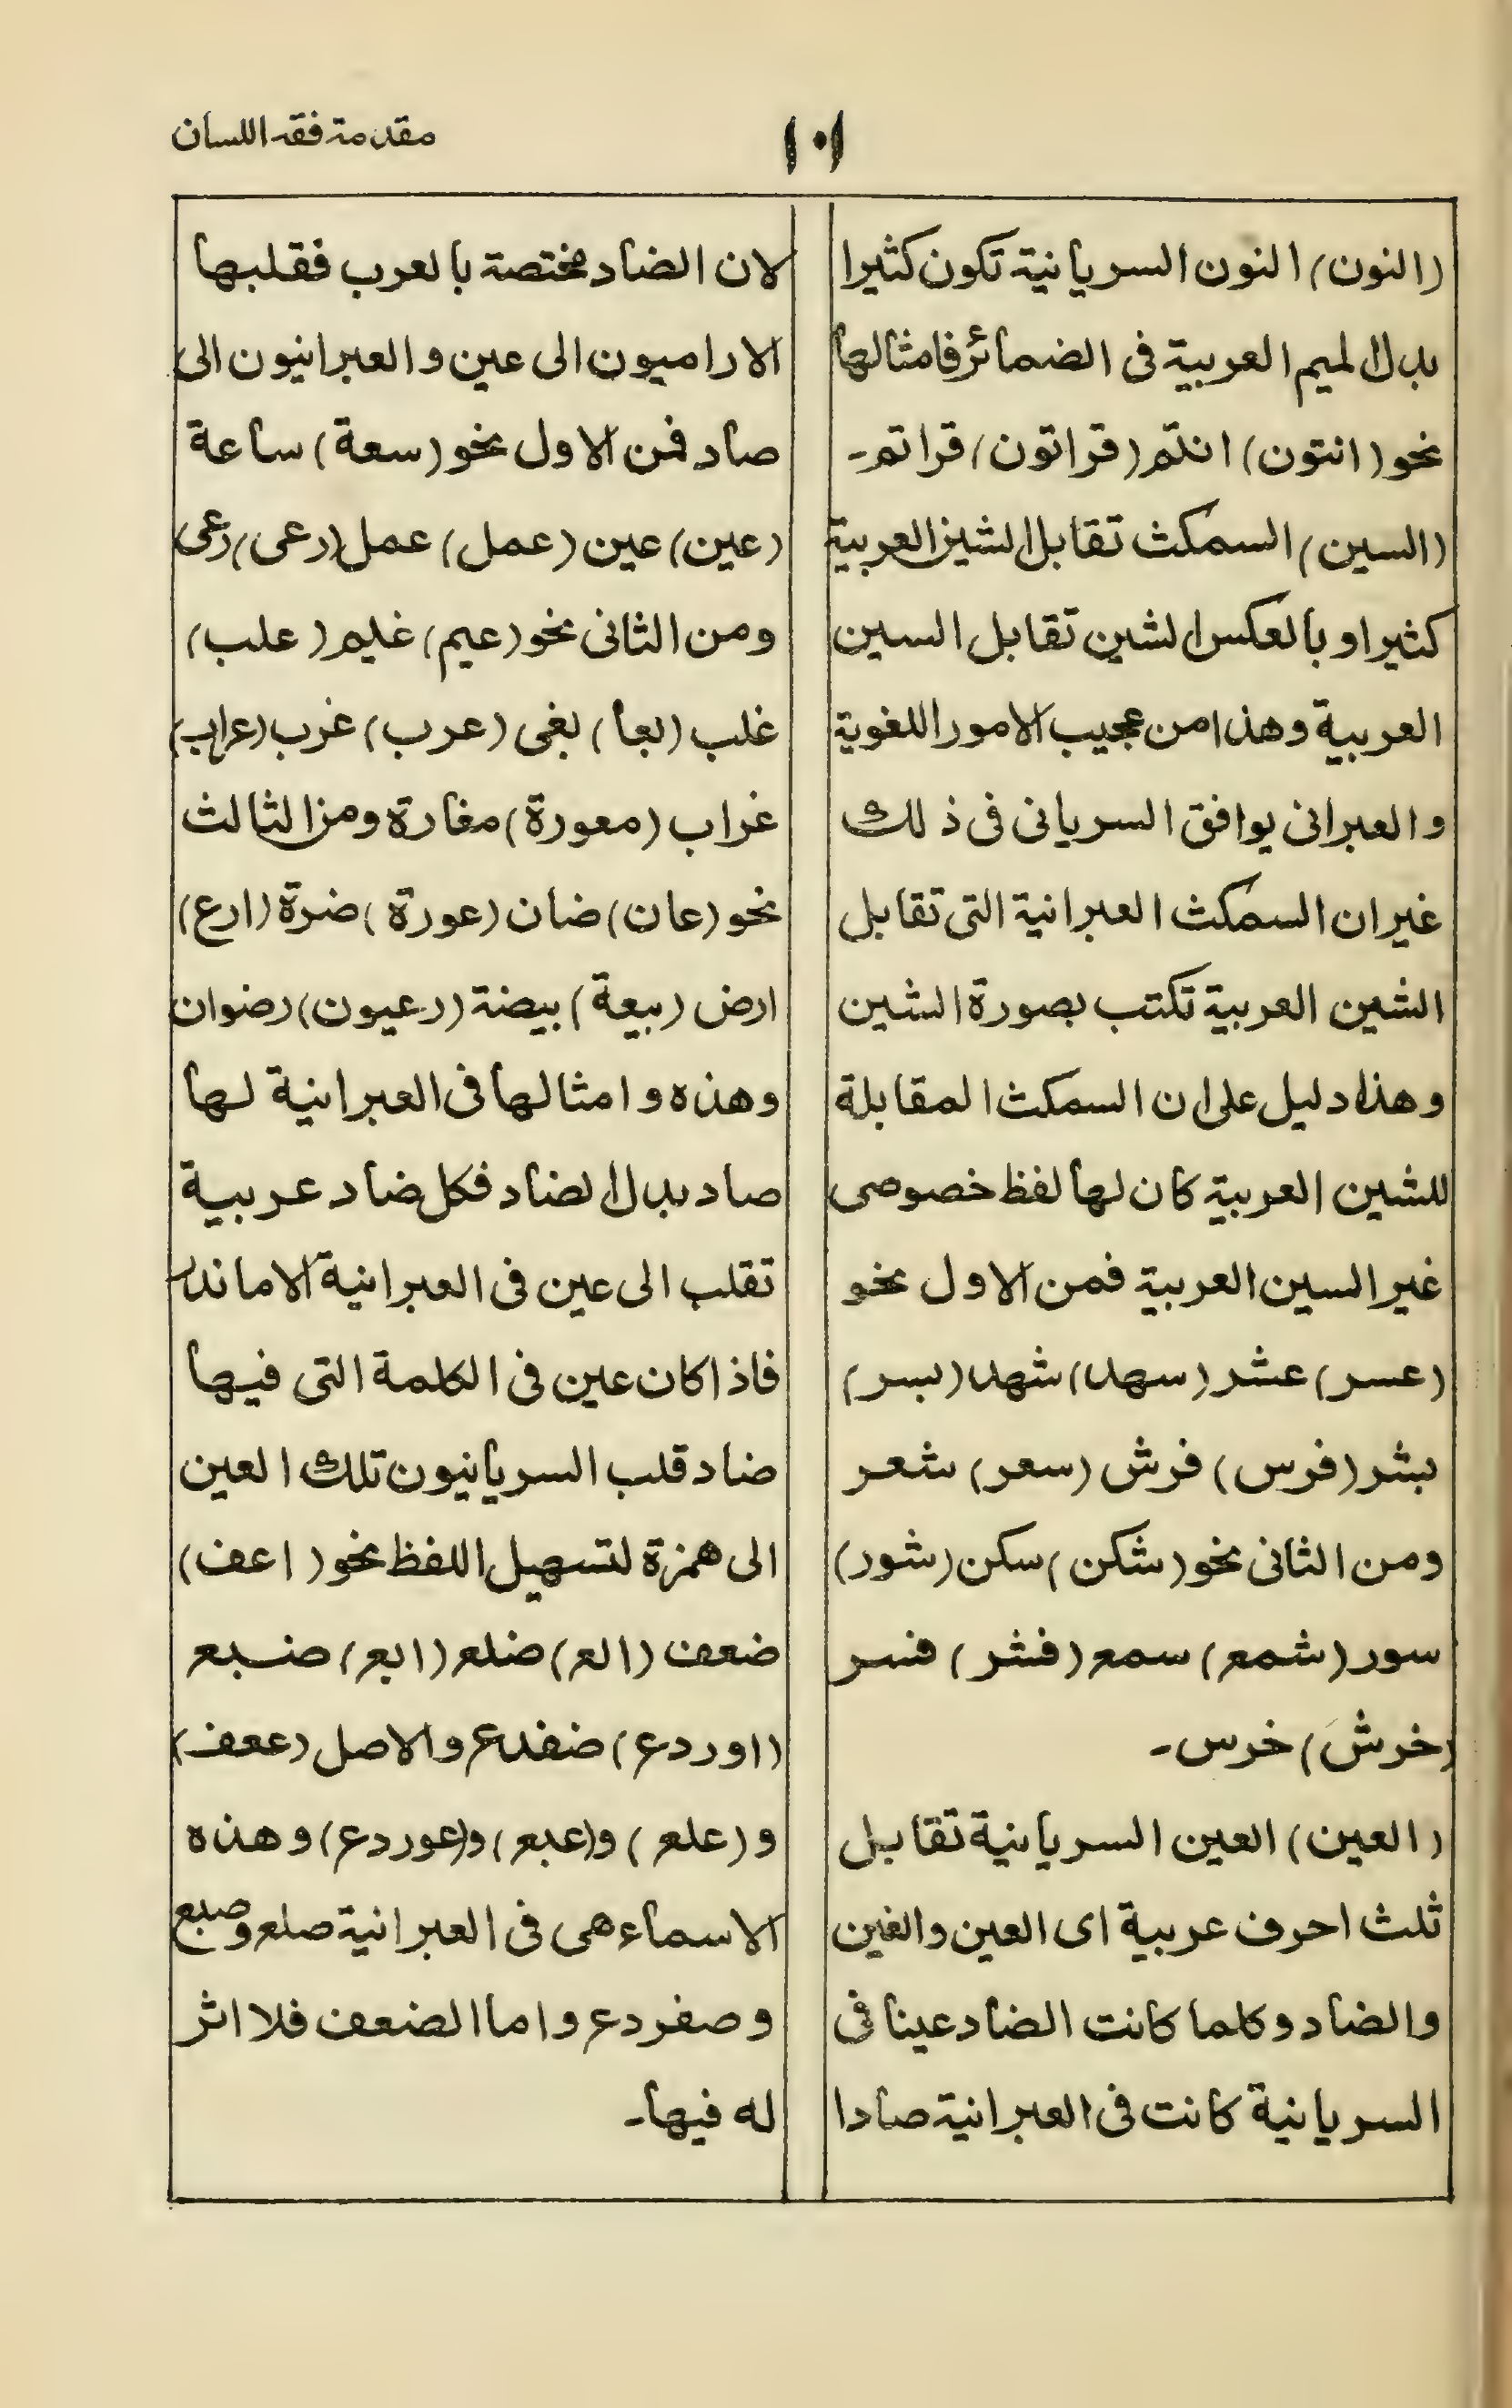 مقدمة فقه اللسان
١٠١
(النون) النون السريانية تكون كثيرا
بدل الميم العربية فى الضمائر فامثالها
نحو (انتون) انتم (قراتون) قراتم۔
(السين) السمكث تقابل الشين العربية
كثيرا و بالعكس الشين تقابل السين
العربية وهذا من عجيب الامور اللغوية
و العبرانى يوافق السريانى فى ذلك
غير ان السمكث العبرانية التى تقابل
الشين العربية تكتب بصورة الشين
و هذا دليل على ان السمكث المقابلة
للشين العربية كان لها لفظ خصوصى
غير السين العربية فمن الاول نحو
(عسر) عشر (سهد) شهد (بسر)
بشر (فرس) فرش (سعر) شعر
ومن الثانى نحو (شكن) سكن (شور)
سور (شمع) سمع (فشر) فسر
(خرش) خرس۔
(العين) العين السريانية تقابل
ثلث احرف عربية اى العين والغين
والضاد وكلما كانت الضاد عينا فى
السريانية كانت فى العبرانية صادا
لان الضاد مختصة بالعرب فقلبها
الاراميون الى عين و العبرانيون الى
صاد فمن الاول نحو (سعة) ساعة
(عين) عين (عمل) عمل (رعى) رعى
ومن الثانى نحو (عيم) غيم (علب)
غلب (بعا) بغى (عرب) غرب (عراب)
غراب (معورة) مغارة ومن الثالث
نحو (عان) ضان (عورة) ضرة (ارع)
ارض (بيعة) بيضة (رعيون) رضوان
وهذه و امثالها فى العبرانية لها
صاد بدل الضاد فكل ضاد عربية
تقلب الى عين فى العبرانية الا ما ندر
فاذا كان عين فى الكلمة التى فيها
ضاد قلب السريانيون تلك العين
الى همزة لتسهيل اللفظ نحو (اعف)
ضعف (الع) ضلع (ابع) ضبع
(اوردع) ضفدع والاصل (ععف)
و (علع) و(عبع) و(عوردع) وهذه
الاسماء هى فى العبرانية صلع وصبع
و صفردع و اما الضعف فلا اثر
له فيها۔